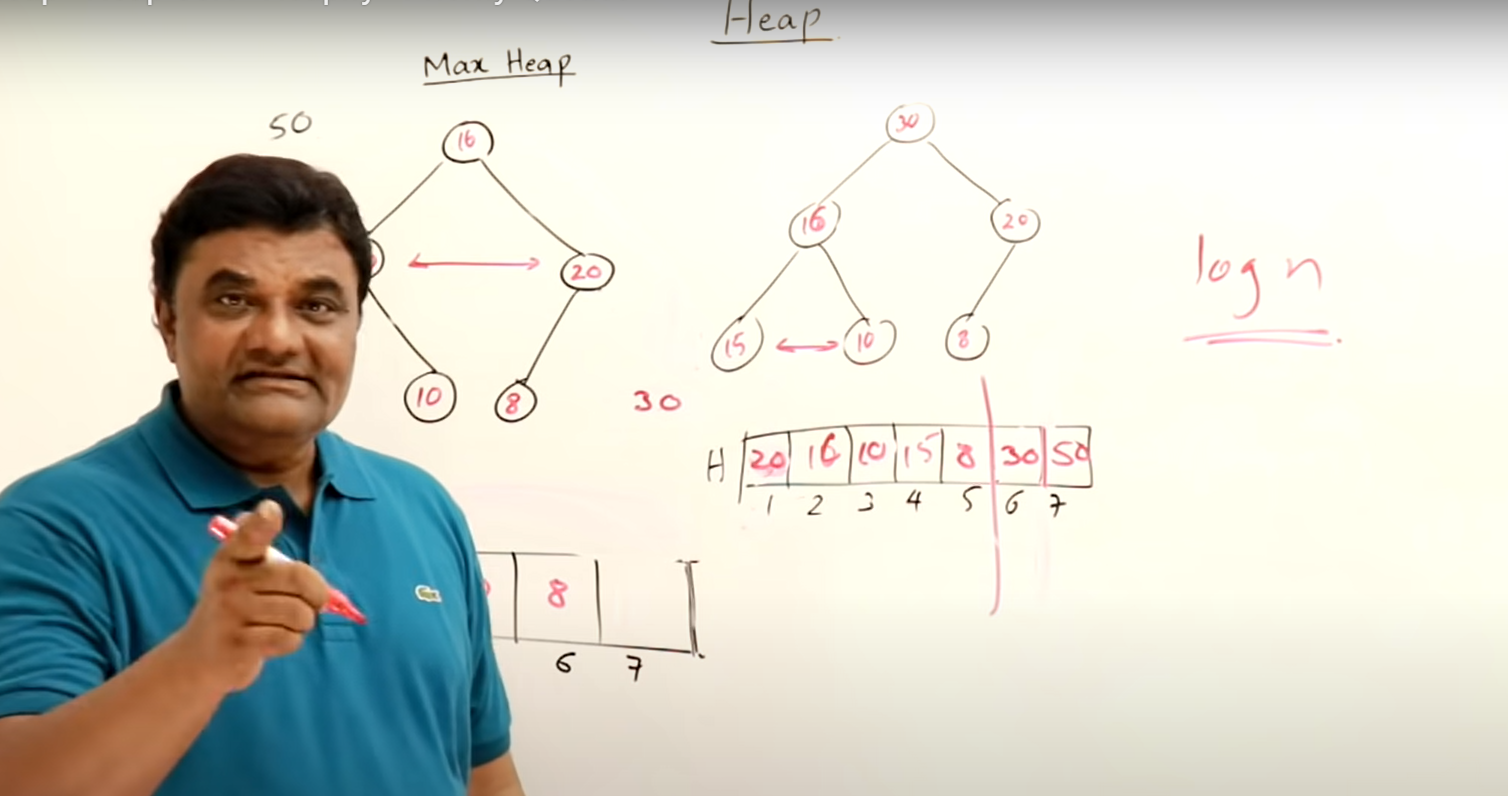 Heap
Max Heap
50
16
20
10
8
30
30
16
20
15
10
8
log n
H 20 16 10 15 8 30 50
1 2 3 4 5 6 7
8
6 7